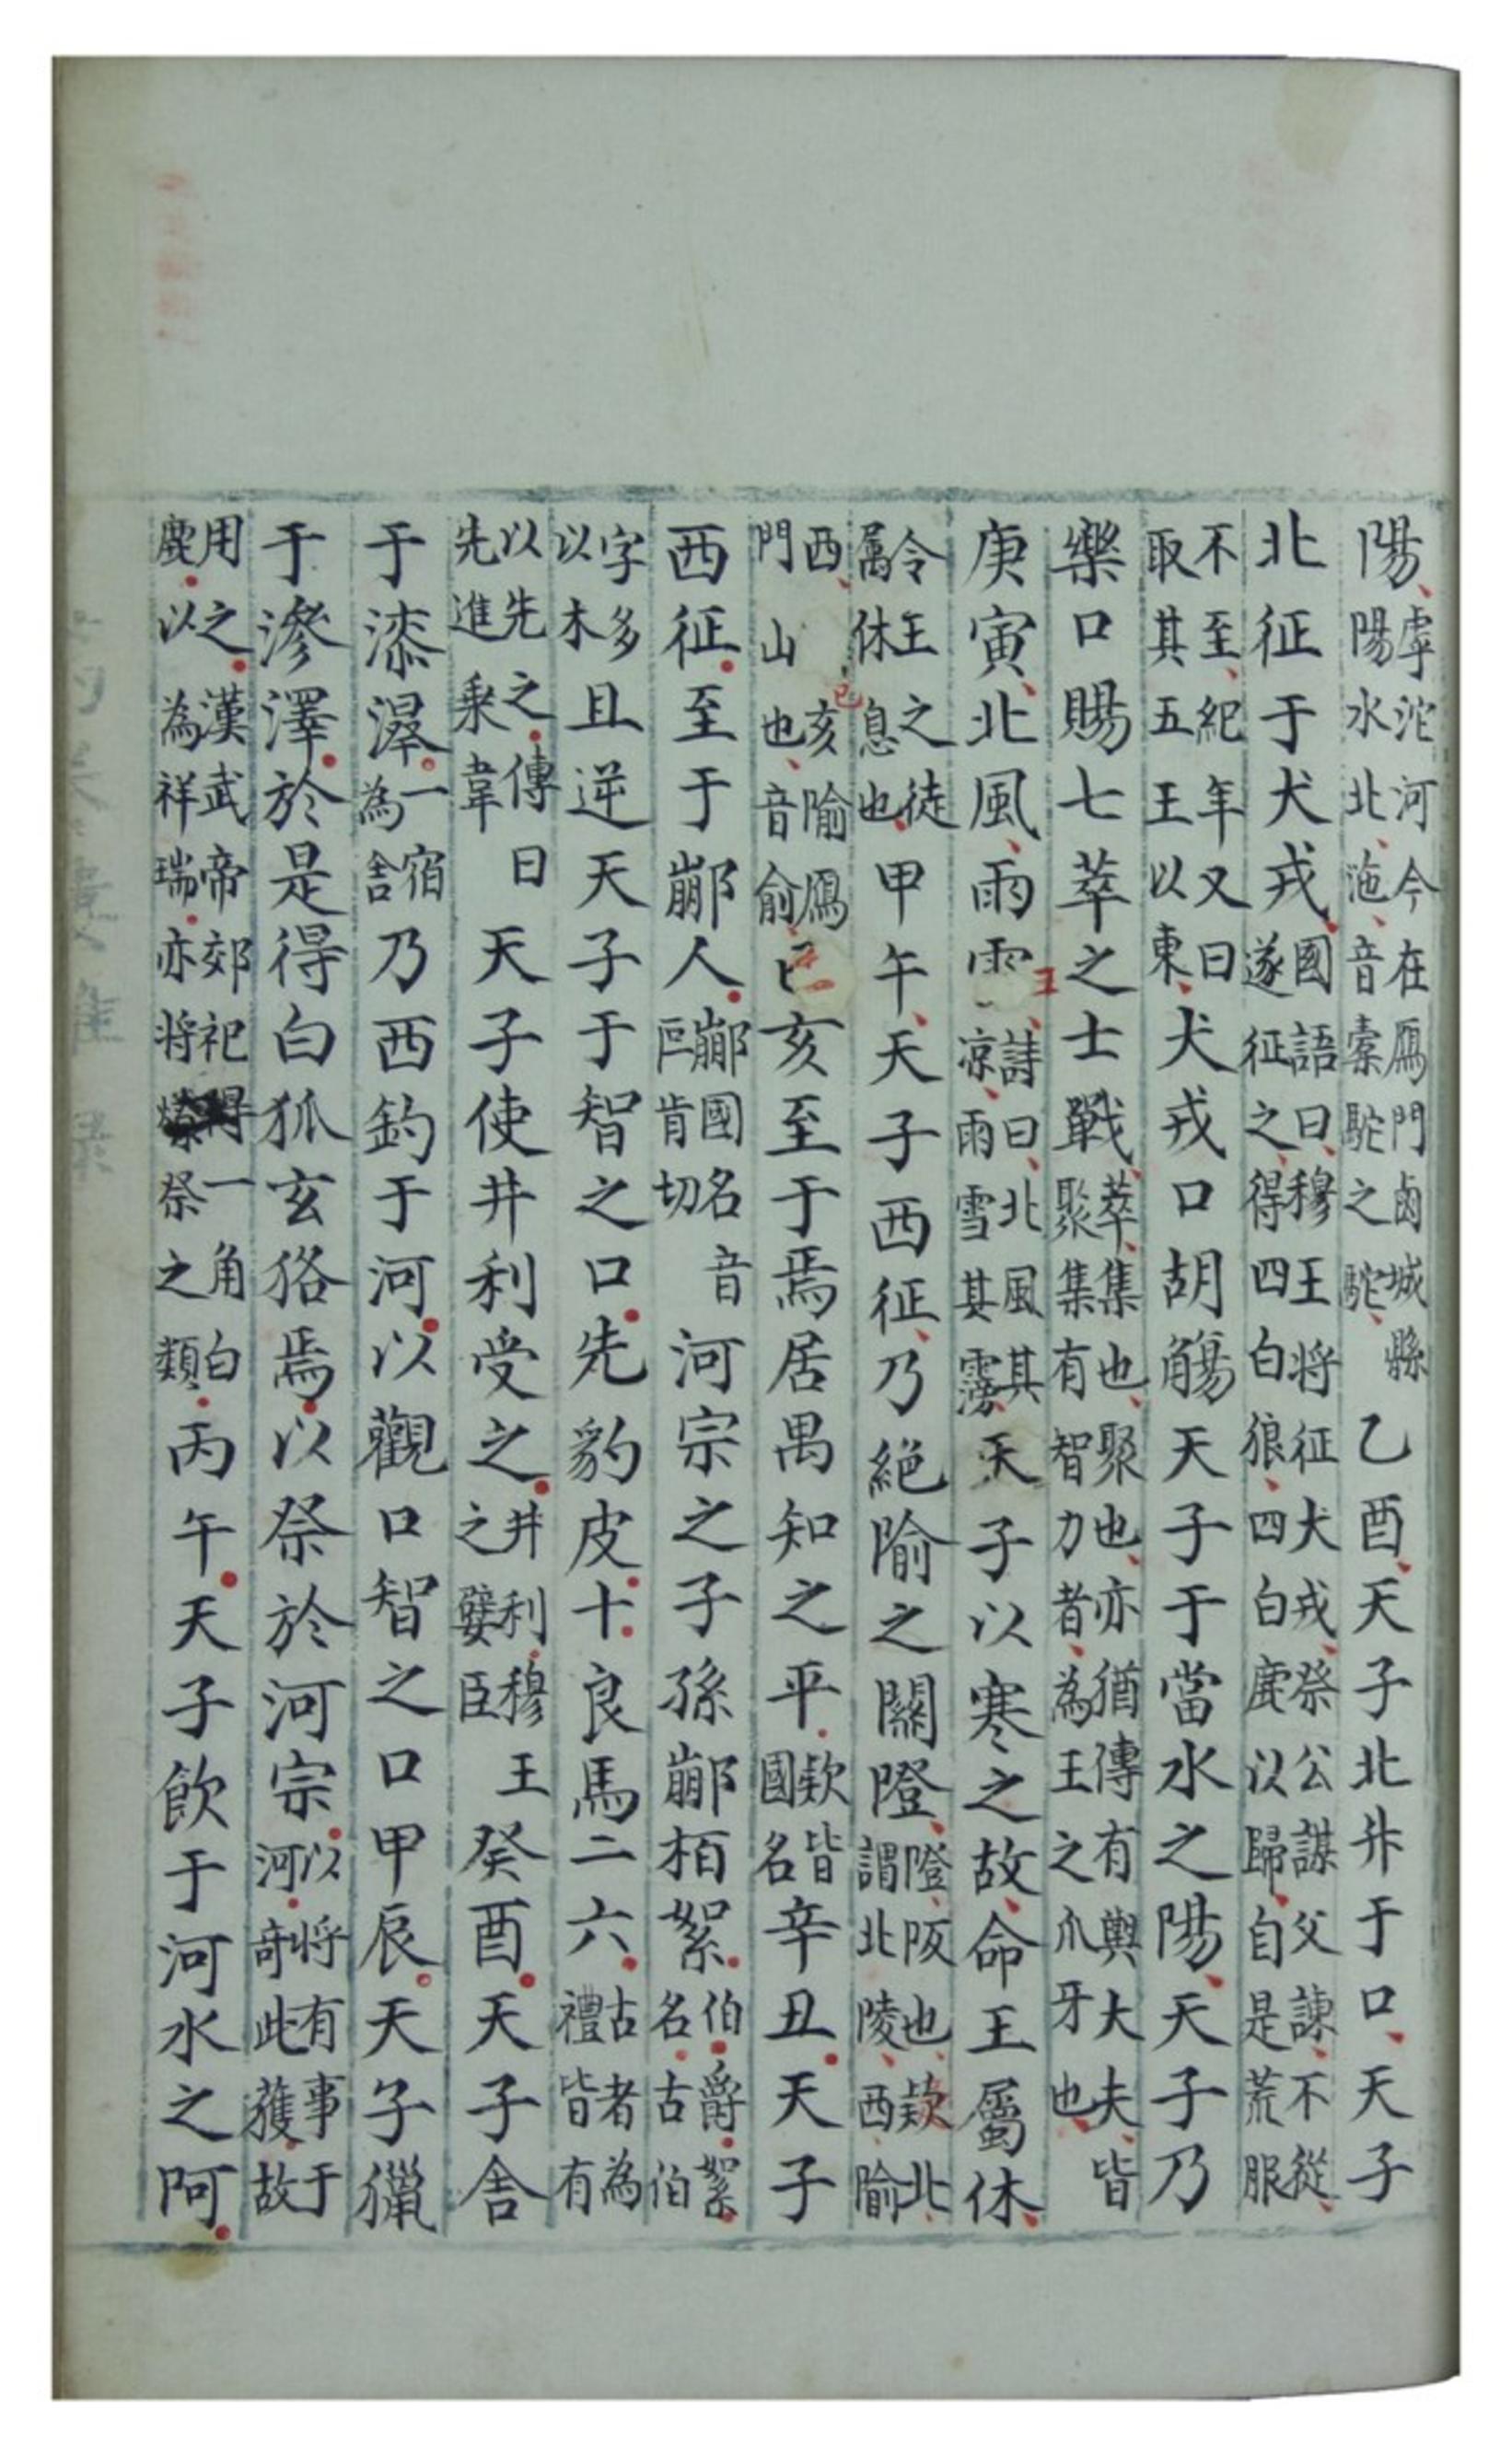 陽虖沱河今在鴈門鹵城縣陽水北沲音橐駝之駝乙酉天子北升于口天子
北征于犬戎國語曰穆王将征犬戎祭公謀父諫不從遂征之得四白狼四白鹿以歸自是荒服
不至紀年又曰取其五王以東犬戎口胡觴天子于當水之陽天子乃
樂口賜七萃之士戰萃集也聚也亦猶傳有輿大夫皆聚集有智力者為王之爪牙也
庚寅北風雨雪詩曰北風其凉雨雪其霶天子以寒之故命王屬休
令王之徒屬休息也甲午天子西征乃絶隃之關隥隥阪也欵北謂北陵西隃
西亥隃鴈門山也音俞己亥至于焉居禺知之平欵皆國名辛丑天子
西征至于䣙人䣙國名音肯切河宗之子孫䣙栢絮伯爵絮名古伯
字多以木且逆天子于智之口先豹皮十良馬二六古者為禮皆有
以先之傳曰先進乘韋天子使井利受之井利穆王之嬖臣癸酉天子舍
于漆澤一宿為舍乃西釣于河以觀口智之口甲辰天子獵
于滲澤於是得白狐玄狢焉以祭於河宗以将有事于河奇此獲故
用之漢武帝郊祀得一角白鹿以為祥瑞亦将燎祭之類丙午天子飲于河水之阿